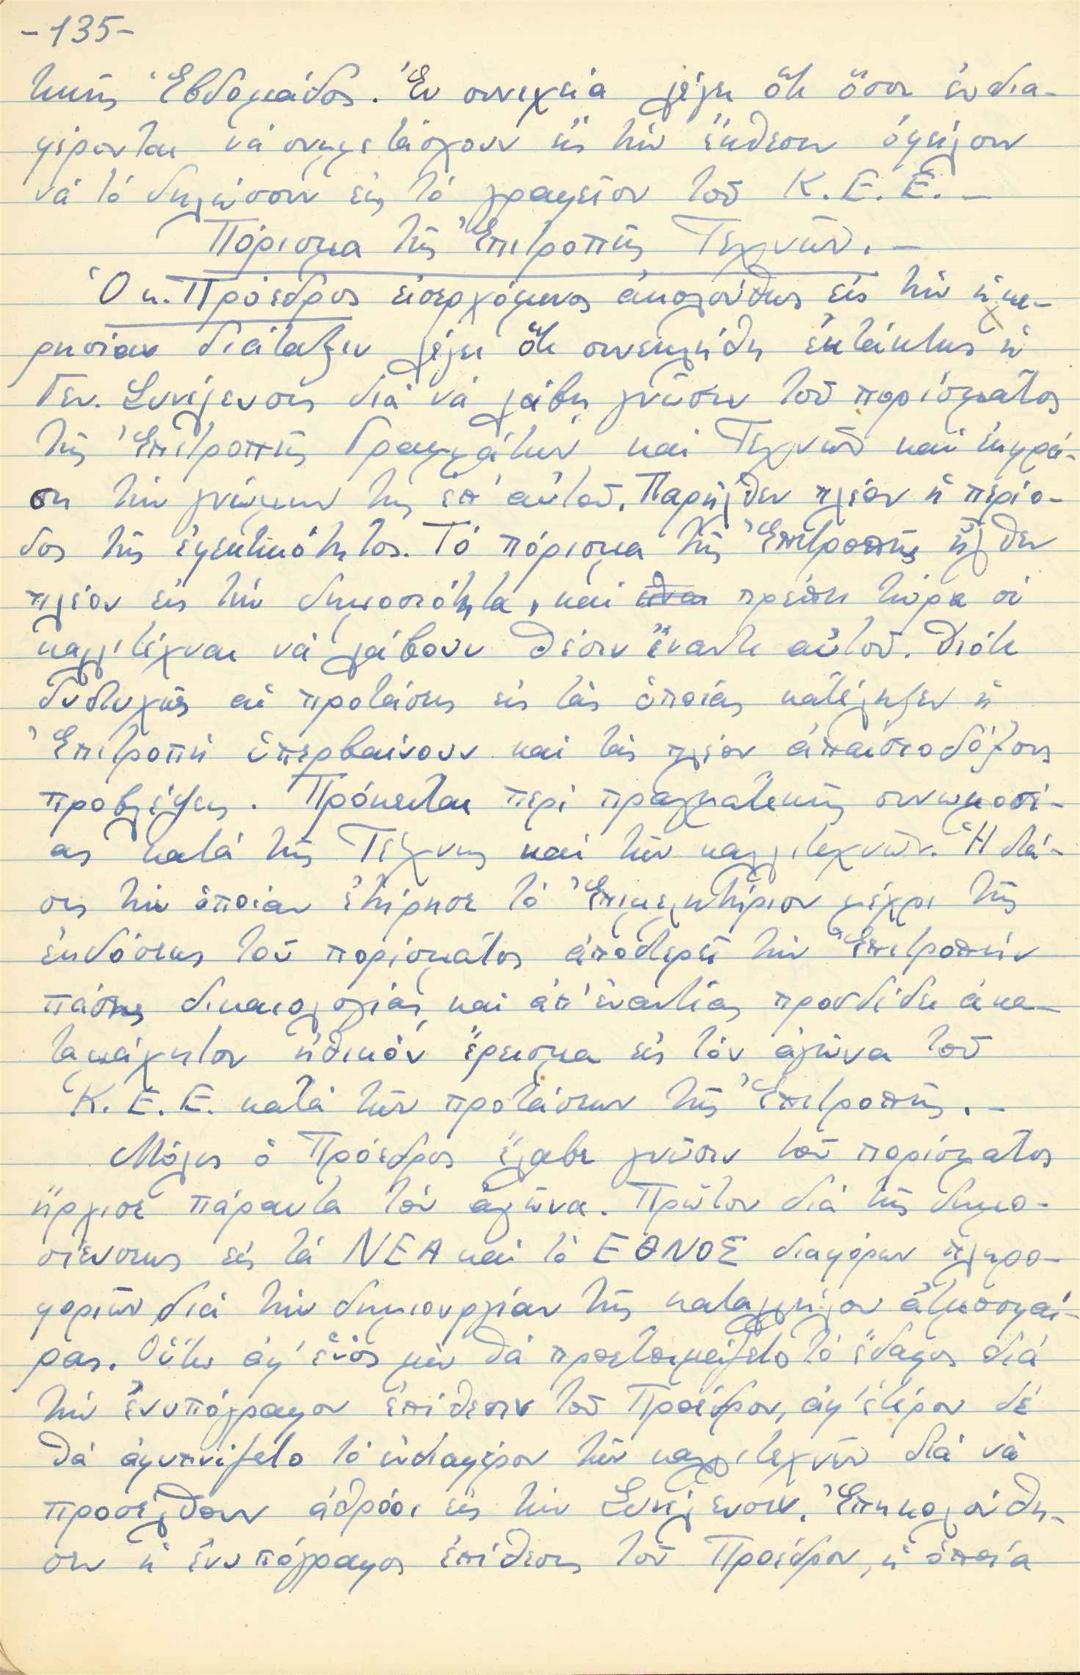 -135-
τικῆς Ἑβδομάδος. Ἐν συνεχείᾳ λέγει ὅτι ὅσοι ἐνδια-
φέρονται νά συμμετάσχουν εἰς τήν ἔκθεσιν ὀφείλουν
νά τό δηλώσουν εἰς τό γραφεῖον τοῦ Κ.Ε.Ε.–
Πόρισμα τῆς Ἐπιτροπῆς Τεχνῶν.–
Ὁ κ. Πρόεδρος εἰσερχόμενος ἀκολούθως εἰς τήν ἡμε-
ρησίαν διάταξιν λέγει ὅτι συνεκλήθη ἐκτάκτως ἡ
Γεν. Συνέλευσις διά νά λάβῃ γνῶσιν τοῦ πορίσματος
τῆς Ἐπιτροπῆς Γραμμάτων καί Τεχνῶν καί ἐκφρά-
σῃ τήν γνώμην της ἐπ' αὐτοῦ. Παρῆλθεν πλέον ἡ περίο-
δος τῆς ἐφεκτικότητος. Τό πόρισμα τῆς Ἐπιτροπῆς ἦλθεν
πλέον εἰς τήν δημοσιότητα, καί πρέπει τώρα οἱ
καλλιτέχναι νά λάβουν θέσιν ἔναντι αὐτοῦ. Διότι
δυστυχῶς αἱ προτάσεις εἰς τάς ὁποίας κατέληξεν ἡ
Ἐπιτροπή ὑπερβαίνουν καί τάς πλέον ἀπαισιοδόξους
προβλέψεις. Πρόκειται περί πραγματικῆς συνωμοσί-
ας κατά τῆς Τέχνης καί τῶν καλλιτεχνῶν. Ἡ στά-
σις τήν ὁποίαν ἐτήρησε τό Ἐπιμελητήριον μέχρι τῆς
ἐκδόσεως τοῦ πορίσματος ἀποστερεῖ τήν Ἐπιτροπήν
πάσης δικαιολογίας καί ἀπ' ἐναντίας προσδίδει ἀκα-
ταμάχητον ἠθικόν ἔρεισμα εἰς τόν ἀγῶνα τοῦ
Κ.Ε.Ε. κατά τῶν προτάσεων τῆς Ἐπιτροπῆς.–
Μόλις ὁ Πρόεδρος ἔλαβε γνῶσιν τοῦ πορίσματος
ἤρχισε πάραυτα τόν ἀγῶνα. Πρῶτον διά τῆς δημο-
σιεύσεως εἰς τά ΝΕΑ καί τό ΕΘΝΟΣ διαφόρων πληρο-
φοριῶν διά τήν δημιουργίαν τῆς καταλλήλου ἀτμοσφαί-
ρας. Οὕτω ἀφ' ἑνός μέν θά προετοιμάζετο τό ἔδαφος διά
τήν ἐνυπόγραφον ἐπίθεσιν τοῦ Προέδρου, ἀφ' ἑτέρου δέ
θά ἀφυπνίζετο τό ἐνδιαφέρον τῶν καλλιτεχνῶν διά νά
προσέλθουν ἀθρόοι εἰς τήν Συνέλευσιν. Ἐπηκολούθη-
σεν ἡ ἐνυπόγραφος ἐπίθεσις τοῦ Προέδρου, ἡ ὁποία